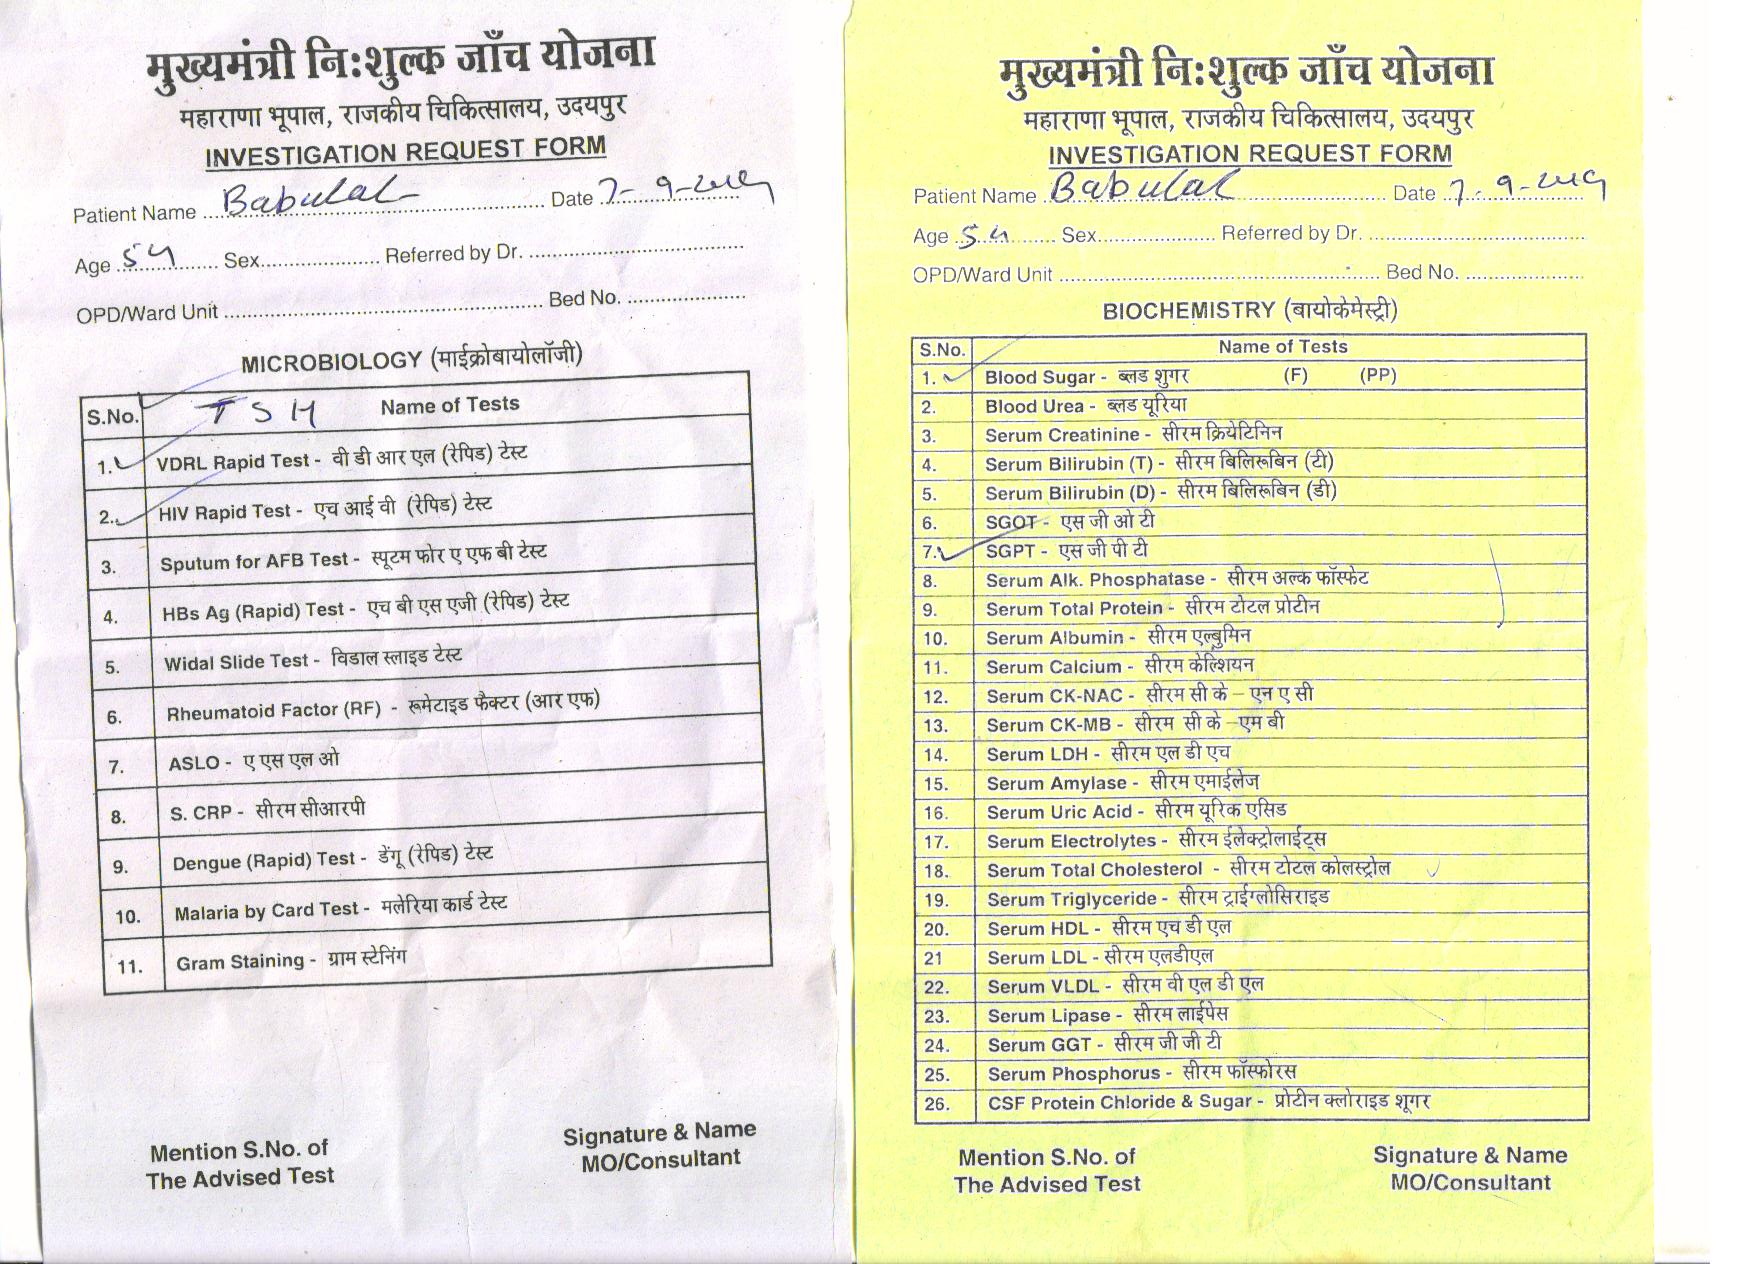 मुख्यमंत्री नि:शुल्क जाँच योजना
महाराणा भूपाल, राजकीय चिकित्सालय, उदयपुर
INVESTIGATION REQUEST FORM
Patient Name Babulal Date 7-9-2019
Age 54 Sex Referred by Dr.
OPD/Ward Unit Bed No.
MICROBIOLOGY (माईक्रोबायोलॉजी)
S.No. TSH Name of Tests
1. VDRL Rapid Test - वी डी आर एल (रेपिड) टेस्ट
2. HIV Rapid Test - एच आई वी (रेपिड) टेस्ट
3. Sputum for AFB Test - स्पूटम फोर ए एफ बी टेस्ट
4. HBs Ag (Rapid) Test - एच बी एस एजी (रेपिड) टेस्ट
5. Widal Slide Test - विडाल स्लाइड टेस्ट
6. Rheumatoid Factor (RF) - रूमेटाइड फैक्टर (आर एफ)
7. ASLO - ए एस एल ओ
8. S. CRP - सीरम सीआरपी
9. Dengue (Rapid) Test - डेंगू (रेपिड) टेस्ट
10. Malaria by Card Test - मलेरिया कार्ड टेस्ट
11. Gram Staining - ग्राम स्टेनिंग
Mention S.No. of Signature & Name
The Advised Test MO/Consultant
मुख्यमंत्री नि:शुल्क जाँच योजना
महाराणा भूपाल, राजकीय चिकित्सालय, उदयपुर
INVESTIGATION REQUEST FORM
Patient Name Babulal Date 7-9-2019
Age 54 Sex Referred by Dr.
OPD/Ward Unit Bed No.
BIOCHEMISTRY (बायोकेमेस्ट्री)
S.No. Name of Tests
1. Blood Sugar - ब्लड शुगर (F) (PP)
2. Blood Urea - ब्लड यूरिया
3. Serum Creatinine - सीरम क्रियेटिनिन
4. Serum Bilirubin (T) - सीरम बिलिरूबिन (टी)
5. Serum Bilirubin (D) - सीरम बिलिरूबिन (डी)
6. SGOT - एस जी ओ टी
7. SGPT - एस जी पी टी
8. Serum Alk. Phosphatase - सीरम अल्क फॉस्फेट
9. Serum Total Protein - सीरम टोटल प्रोटीन
10. Serum Albumin - सीरम एल्बुमिन
11. Serum Calcium - सीरम केल्शियन
12. Serum CK-NAC - सीरम सी के – एन ए सी
13. Serum CK-MB - सीरम सी के –एम बी
14. Serum LDH - सीरम एल डी एच
15. Serum Amylase - सीरम एमाईलेज
16. Serum Uric Acid - सीरम यूरिक एसिड
17. Serum Electrolytes - सीरम ईलेक्ट्रोलाईट्स
18. Serum Total Cholesterol - सीरम टोटल कोलस्ट्रोल
19. Serum Triglyceride - सीरम ट्राईग्लोसिराइड
20. Serum HDL - सीरम एच डी एल
21 Serum LDL - सीरम एलडीएल
22. Serum VLDL - सीरम वी एल डी एल
23. Serum Lipase - सीरम लाईपेस
24. Serum GGT - सीरम जी जी टी
25. Serum Phosphorus - सीरम फॉस्फोरस
26. CSF Protein Chloride & Sugar - प्रोटीन क्लोराइड शूगर
Mention S.No. of Signature & Name
The Advised Test MO/Consultant